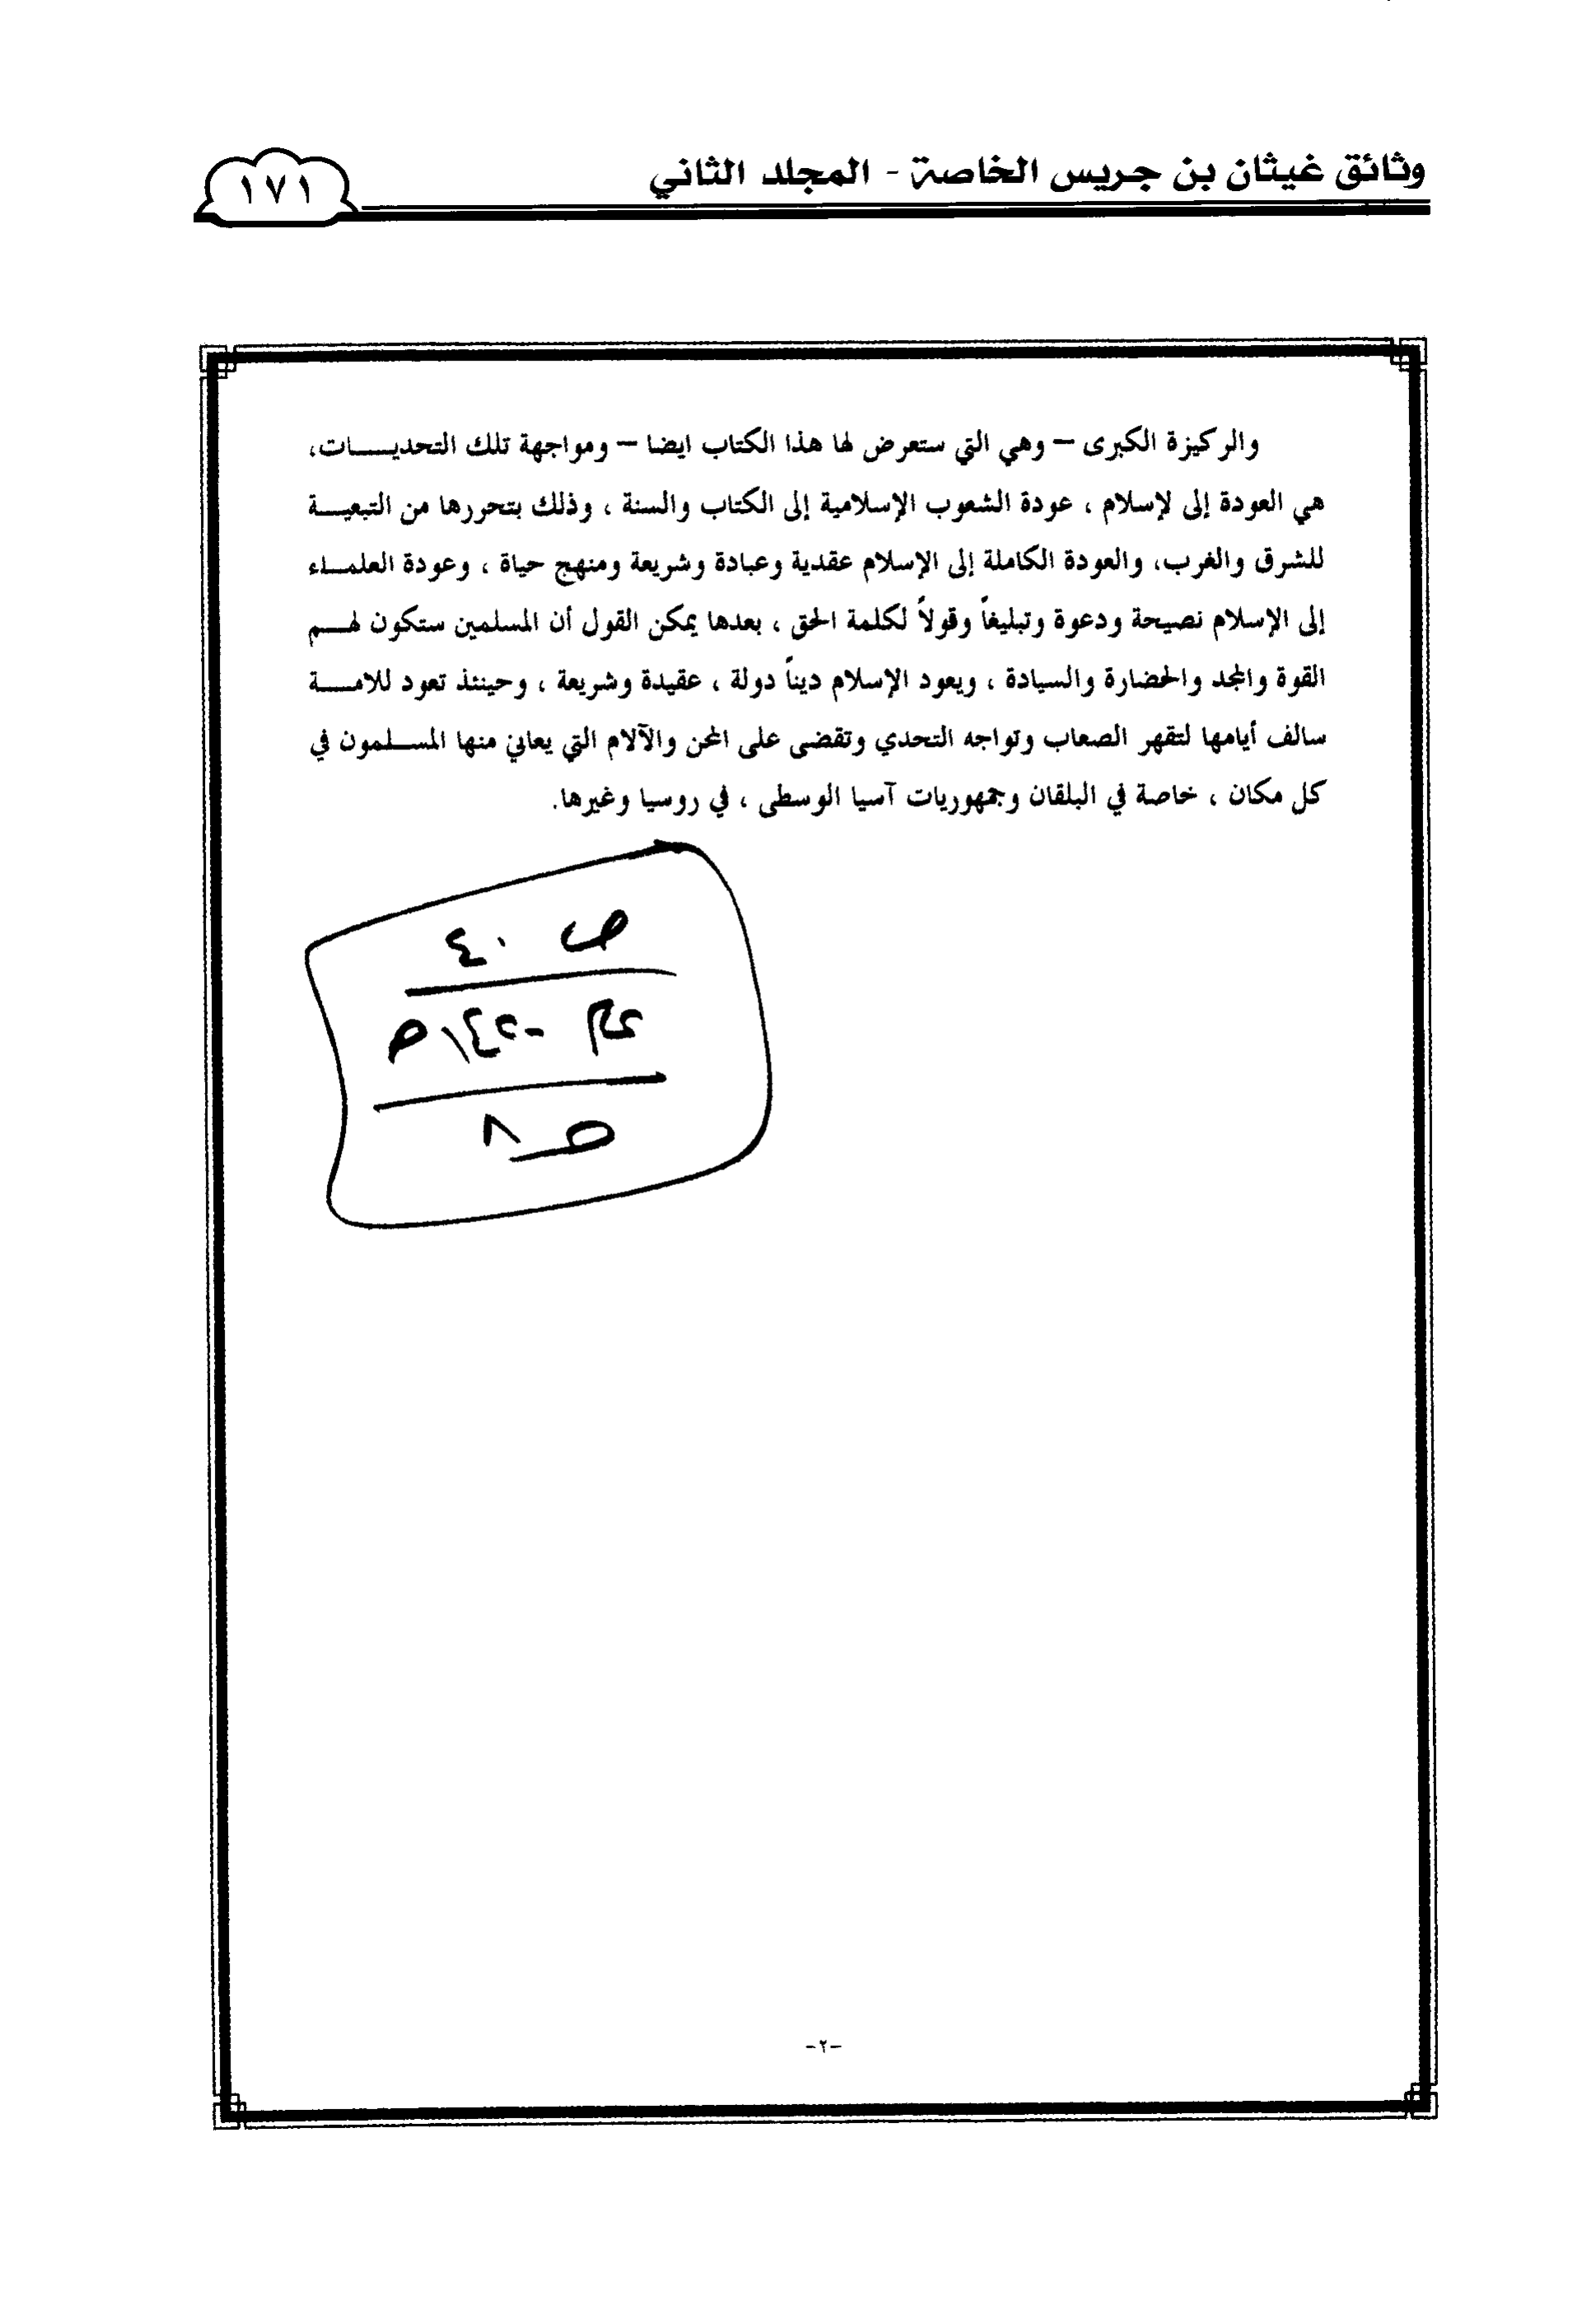 وثائق غيثان بن جريس الخاصة - المجلد الثاني
١٧١
والركيزة الكبرى – وهي التي ستعرض لها هذا الكتاب ايضا – ومواجهة تلك التحديـــات،
هي العودة إلى لإسلام ، عودة الشعوب الإسلامية إلى الكتاب والسنة ، وذلك بتحررها من التبعيـــة
للشرق والغرب، والعودة الكاملة إلى الإسلام عقدية وعبادة وشريعة ومنهج حياة ، وعودة العلمـاء
إلى الإسلام نصيحة ودعوة وتبليغاً وقولاً لكلمة الحق ، بعدها يمكن القول أن المسلمين ستكون لهـــم
القوة والمجد والحضارة والسيادة ، ويعود الإسلام ديناً دولة ، عقيدة وشريعة ، وحينئذ تعود للامـــة
سالف أيامها لتقهر الصعاب وتواجه التحدي وتقضى على المحن والآلام التي يعاني منها المسـلمون في
كل مكان ، خاصة في البلقان وجمهوريات آسيا الوسطى ، في روسيا وغيرها.
ص ٤٠
-٢-